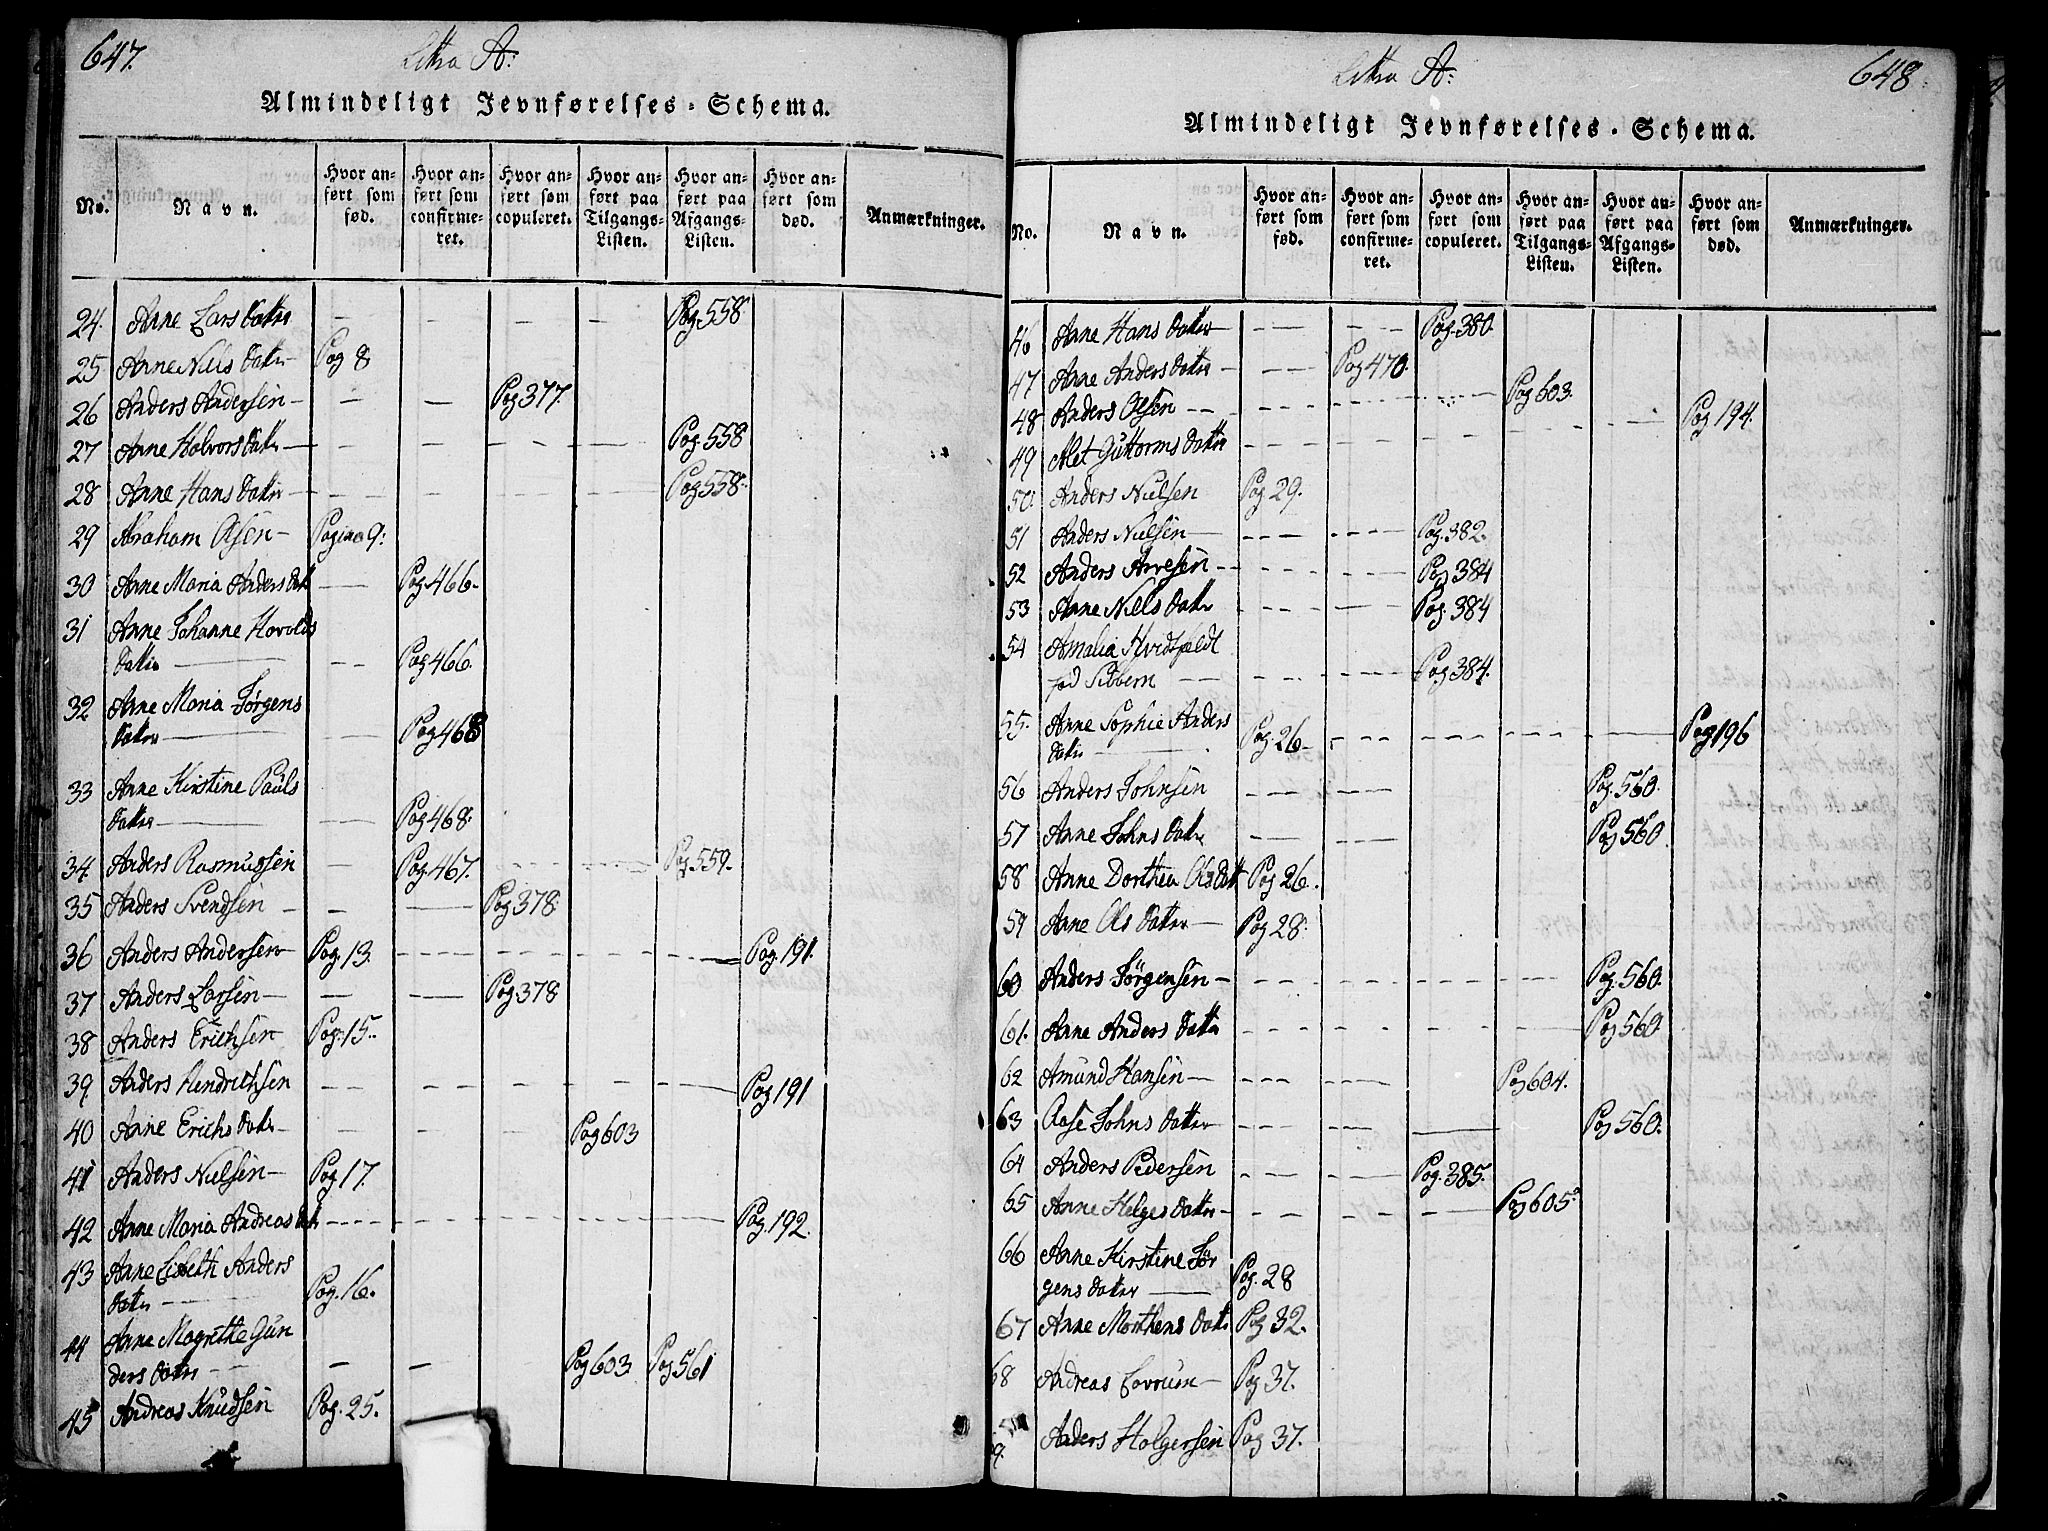 647.
Littra A:
Almindeligt Jevnførelses-Schema.
No.
Navn.
Hvor anført som fød.
Hvor anført som confirmeret.
Hvor anført som copuleret.
Hvor anført paa Tilgangs-Listen.
Hvor anført paa Afgangs-Listen.
Hvor anført som død.
Anmærkninger.
24. Anne Lars Datter — — — — Pag. 558
25 Anne Niels Datr — Pag 8
26 Anders Andersen — — — Pag 377.
27 Anne Halvors Datr — — — — — Pag. 558
28 Anne Hans Datr — — — — — Pag 558.
29 Abraham Olsen — Pagina 9:
30 Anne Maria Anders Datt — Pag 466.
31 Anne Johanne Hovolds
Datter — — Pag 466.
32 Anne Maria Jørgens
Datter — — Pag 468
33 Anne Kirstine Pauls
Datter — — Pag 468.
34. Anders Rasmussen — Pag 467. — — Pag. 559.
35 Anders Svendsen — — — Pag 378.
36 Anders Andersen Pag. 13. — — — — Pag. 191.
37 Anders Larsen — — — Pag 378
38 Anders Erichsen Pag. 15.
39. Anders Hendrichsen — — — — — Pag 191
40 Anne Erichs Datr — — — — Pag 603
41 Anders Nielsen — Pag 17.
42 Anne Maria Andreas Datr — — — — — Pag. 192.
43 Anne Lisbeth Anders
Datr — Pag. 16.
44 Anne Magrethe Gun
ders Datter — — — Pag 603 Pag 561
45 Andreas Knudsen Pag. 25.
Littra A:
648
Almindeligt Jevnførelses-Schema.
No.
Navn.
Hvor anført som fød.
Hvor anført som confirmeret.
Hvor anført som copuleret.
Hvor anført paa Tilgangs-Listen.
Hvor anført paa Afgangs-Listen.
Hvor anført som død.
Anmærkninger.
46 Anne Hans Datter — — Pag. 380.
47 Anne Anders Datter — — Pag 470.
48 Anders Olsen — — — — Pag 603.
49 Guttorms Datter — — — — — Pag 194.
50. Anders Nielsen Pag 29.
51 Anders Nielsen — — — Pag. 382.
52 Anders Arvesen — — — Pag 384
53 Anne Niels Datr — — Pag. 384
54 Amalia Hvidtfeldt
fød Sibbern — — — Pag 384.
55. Anne Sophie Anders
Datr — Pag 26 — — — — — Pag 196
56 Anders Johnsen — — Pag. 560.
57 Anne Johns Datr — — Pag 560.
58 Anne Dorthea Ols Datt Pag 26.
59 Anne Ols Datter — Pag 28.
60 Anders Jørgensen — — — — — Pag. 560.
61. Anne Anders Datter — — — — Pag 560
62 Amund Hansen — — — Pag 604.
63 Aase Johns Datter — — — Pag 560.
64 Anders Pedersen — — Pag. 385.
65 Anne Helges Datter — — — — Pag 605.
66 Anne Kirstine Jør
gens Datter — Pag. 28
67 Anne Morthens Datr Pag 32.
68 Andreas Lovrum — Pag 37.
9. Anders Holgersen Pag 37.